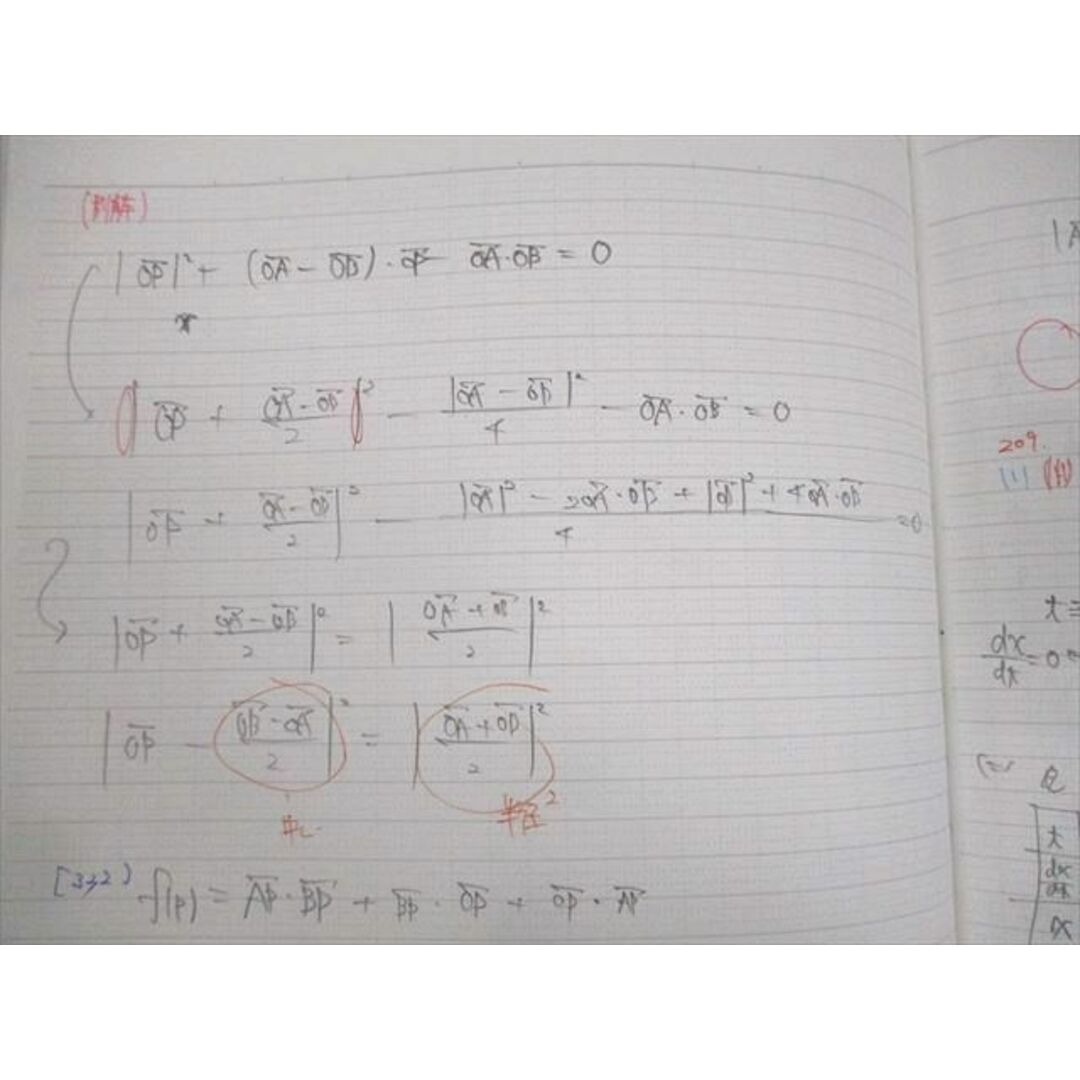 (別解)
|OP|² + (OA - OB)・OP - OA・OB = 0
|OP + (OA - OB)/2|² - |OA - OB|²/4 - OA・OB = 0
|OP + (OA - OB)/2|² - (|OA|² - 2OA・OB + |OB|² + 4OA・OB)/4 = 0
|OP + (OA - OB)/2|² = |(OA + OB)/2|²
|OP - (OB - OA)/2|² = |(OA + OB)/2|²
中心 半径²
f(P) = AP・BP + BP・OP + OP・AP
209.
(1)
dx/dt = 0
t
dx/dt
x